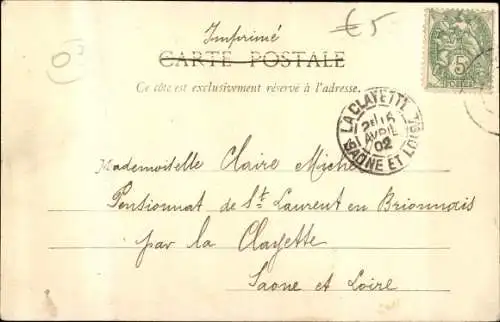 Imprimé
€5
CARTE POSTALE
Ce côté est exclusivement réservé à l'adresse.
5
LA CLAYETTE
2E 16
AVRIL
02
SAONE ET LOIRE
Mademoiselle Claire Michel
Pensionnat de St. Laurent en Brionnais
par la Clayette
Saone et Loire